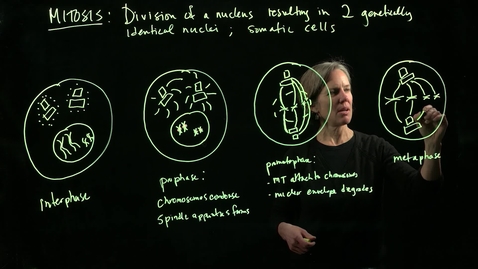 MITOSIS: Division of a nucleus resulting in 2 genetically
identical nuclei; somatic cells
interphase
prophase:
chromosomes condense
spindle apparatus forms
prometaphase:
- MT attach to chromosomes
- nuclear envelope degrades
metaphase